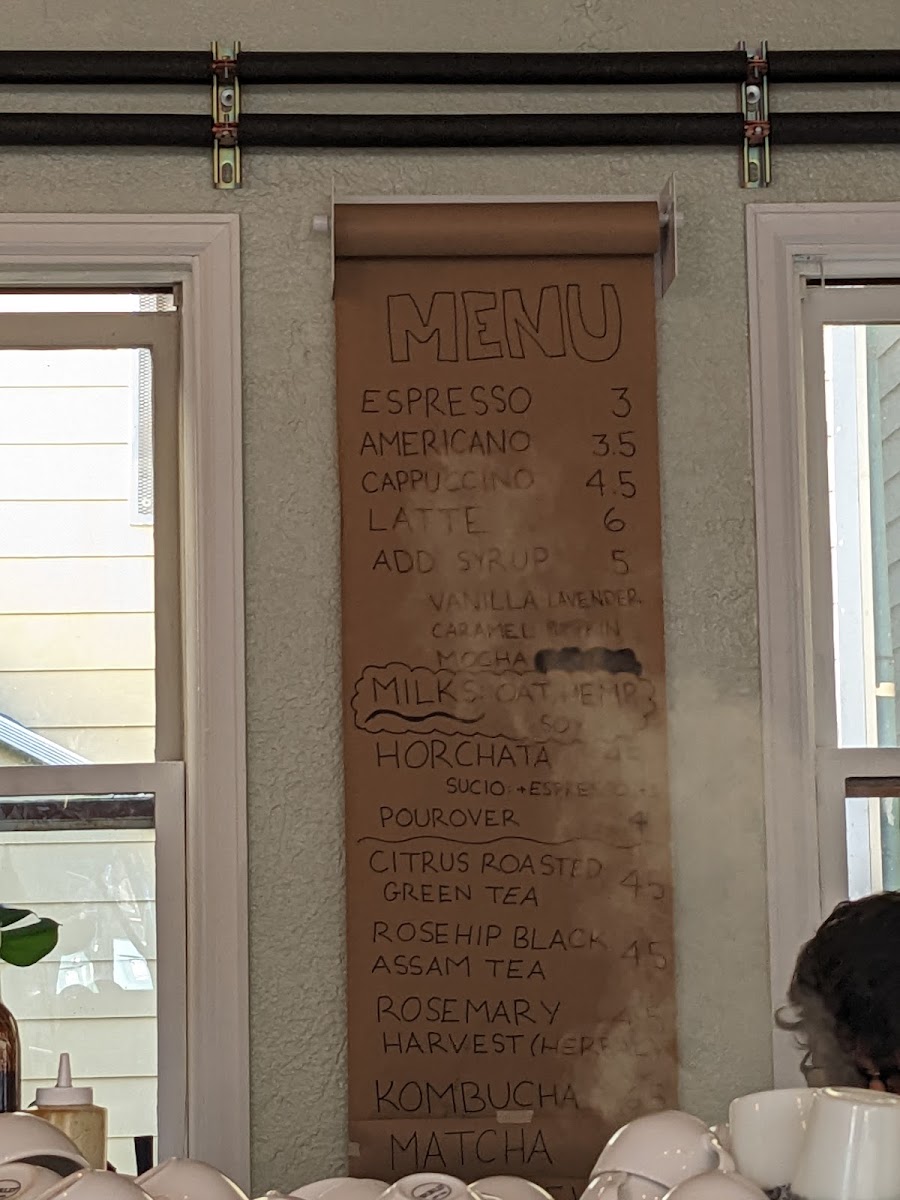 MENU
ESPRESSO 3
AMERICANO 3.5
CAPPUCCINO 4.5
LATTE 6
ADD SYRUP 5
VANILLA LAVENDER
CARAMEL PUMPKIN
MOCHA
MILKS: OAT, HEMP,
SOY
HORCHATA 45
SUCIO: +ESPRESSO
POUROVER 4
CITRUS ROASTED
GREEN TEA 45
ROSEHIP BLACK
ASSAM TEA 45
ROSEMARY 4.5
HARVEST (HERBAL)
KOMBUCHA
MATCHA